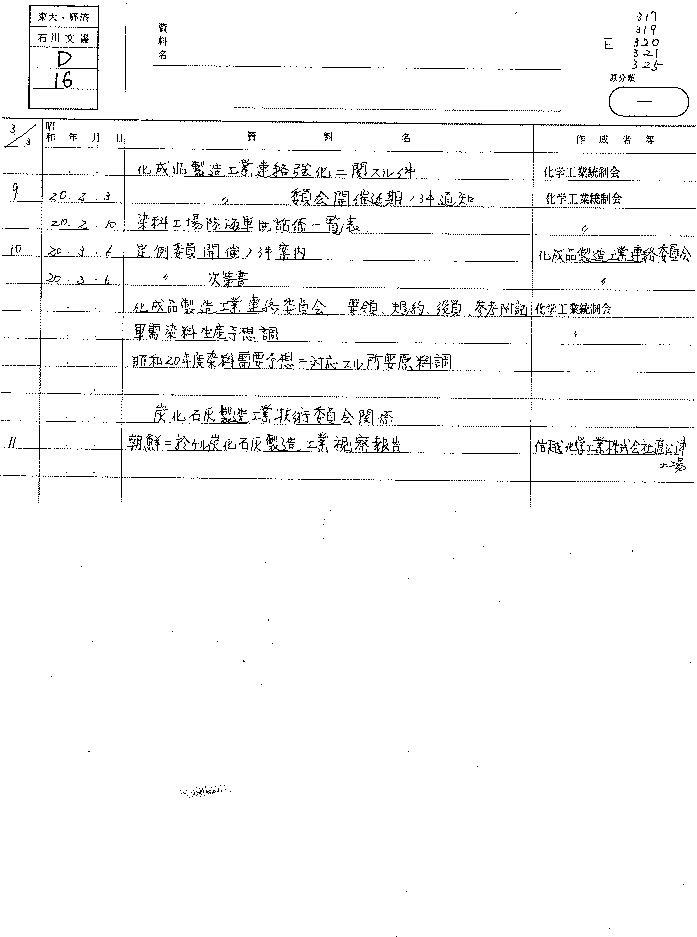 東大・経済
石川文書
D
16
資料名
317
319
E 320
321
325
原分類
一
3/3
昭和 年 月 日 資料名 作成者等
化成品製造工業連絡強化ニ関スル件 化学工業統制会
9 20.2.3 〃 委員会開催延期ノ件通知 化学工業統制会
20.2.10 染料工場陸海軍民評価一覧表 〃
10 20.3.6 定例委員開催ノ件案内 化成品製造工業連絡委員会
20.3.6 〃 次第書 〃
化成品製造工業連絡委員会 要領、規約、役員、参考附記 化学工業統制会
軍需染料生産予想調 〃
昭和20年度染料需要予想ニ対応スル所要原料調
炭化石灰製造工業技術委員会関係
11 朝鮮ニ於ケル炭化石灰製造工業視察報告 信越化学工業株式会社直江津
工場